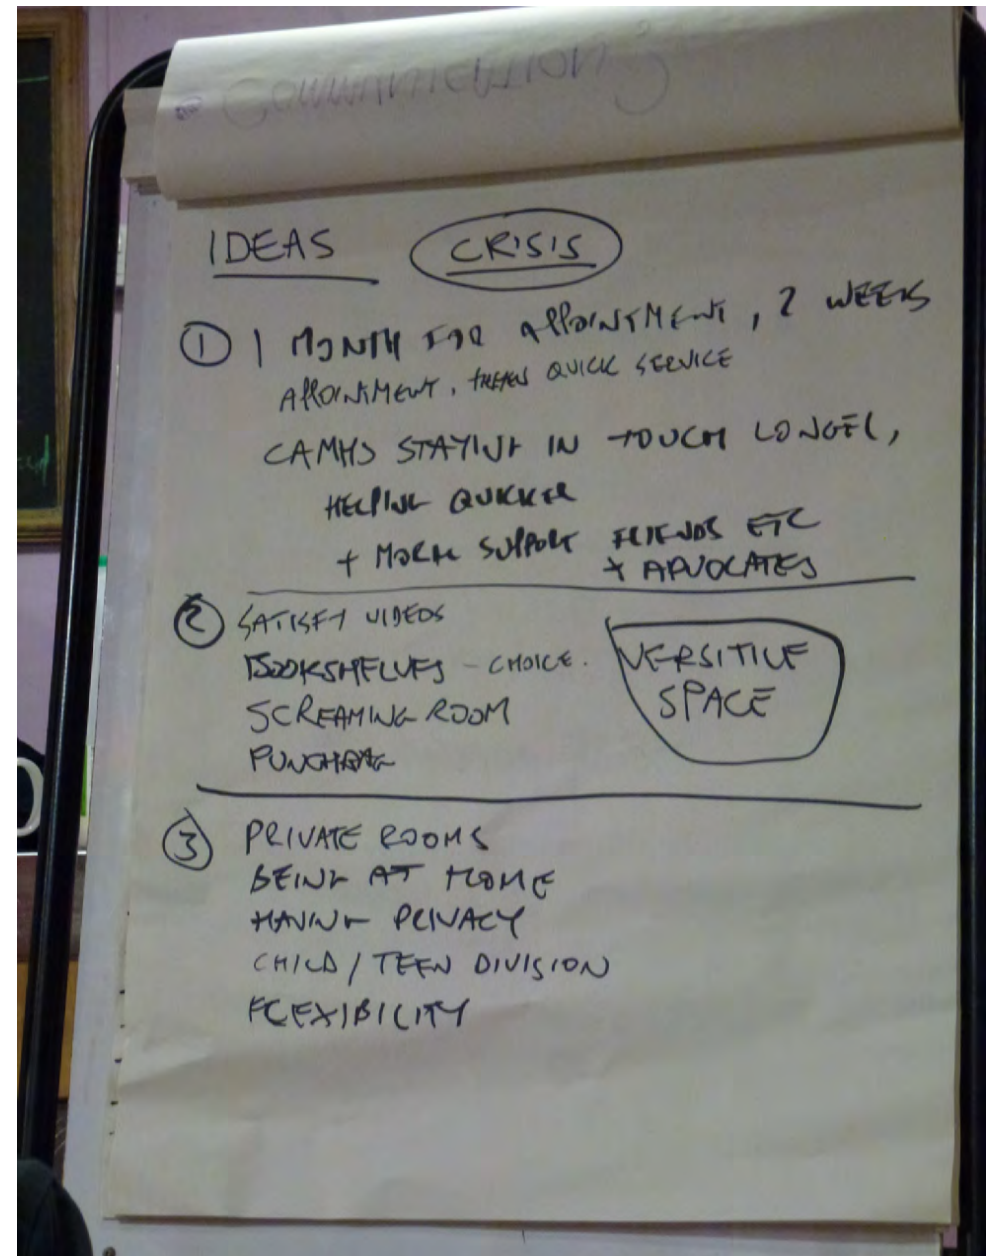 COMMUNICATION
IDEAS CRISIS
① 1 MONTH FOR APPOINTMENT, 2 WEEKS
APPOINTMENT, QUICK SERVICE
CAMHS STAYING IN TOUCH LONGER,
HELPING QUICKER
+ MORE SUPPORT FRIENDS ETC
+ ADVOCATES
② SATISFY VIDEOS
BOOKSHELVES - CHOICE.
SCREAMING ROOM
PUNCHBAG
VERSITIVE
SPACE
③ PRIVATE ROOMS
BEING AT HOME
HAVING PRIVACY
CHILD / TEEN DIVISION
FLEXIBILITY